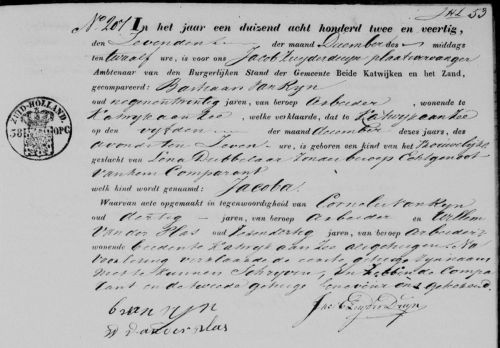 No 201 In het jaar een duizend acht honderd twee en veertig,
den Zevenden der maand December des middags
ten twaalf ure, is voor ons, Jacob Zuyderduyn plaatsvervanger
Ambtenaar van den Burgerlijken Stand der Gemeente Beide Katwijken en het Zand,
gecompareerd: Barthaar van Ryn
oud negenentwintig jaren, van beroep Arbeider, wonende te
Katwyk aan Zee, welke verklaarde, dat te Katwyk aan Zee
op den vyfden der maand december dezes jaars, des
avonds ten Zeven ure, is geboren een kind van het Vrouwelyke
geslacht van Lena Dubbelaar zonder beroep Echtgenoot
van hem Comparant
welk kind wordt genaamd: Jacoba.
Waarvan acte opgemaakt in tegenwoordigheid van Cornelis van Ryn
oud dertig jaren, van beroep Arbeider en Willem
van der Plas oud jaren, van beroep Arbeider
wonende beiden te Katwyk aan Zee Na
voorlezing verklaarde de eerste getuige
niet te kunnen Schryven, en hebben de Compa
rant en de tweede getuige benevens ons geteekend.
b van ryn
W van der plas
Jacob Zuyderduyn
53
ZUID-HOLLAND